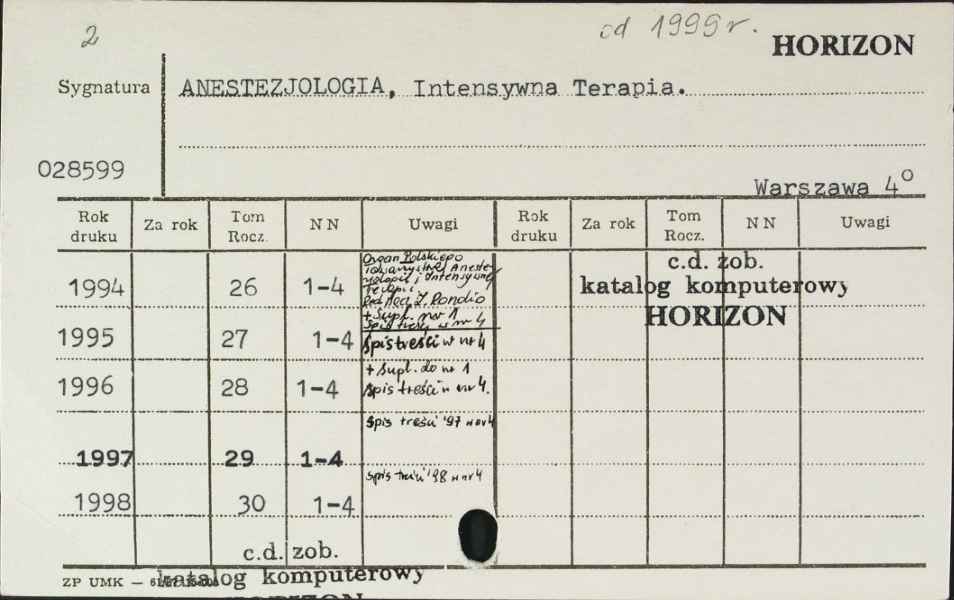 2
cd 1999 r.
HORIZON
Sygnatura
ANESTEZJOLOGIA, Intensywna Terapia.
028599
Warszawa 4°
Rok druku Za rok Tom Rocz. N N Uwagi Rok druku Za rok Tom Rocz. N N Uwagi
Organ Polskiego
Towarzystwa Aneste-
zjologii i Intensywnej
Terapii
Red. Nacz. Z. Rondio
1994 26 1-4
+ Supl. nr 1
Spis treści w nr 4
c.d. zob.
katalog komputerowy
HORIZON
1995 27 1-4 Spis treści w nr 4
+ Supl. do nr 1
1996 28 1-4 Spis treści w nr 4.
Spis treści '97 w nr 4
1997 29 1-4
Spis treści '98 w nr 4
1998 30 1-4
c.d. zob.
katalog komputerowy
HORIZON
ZP UMK —